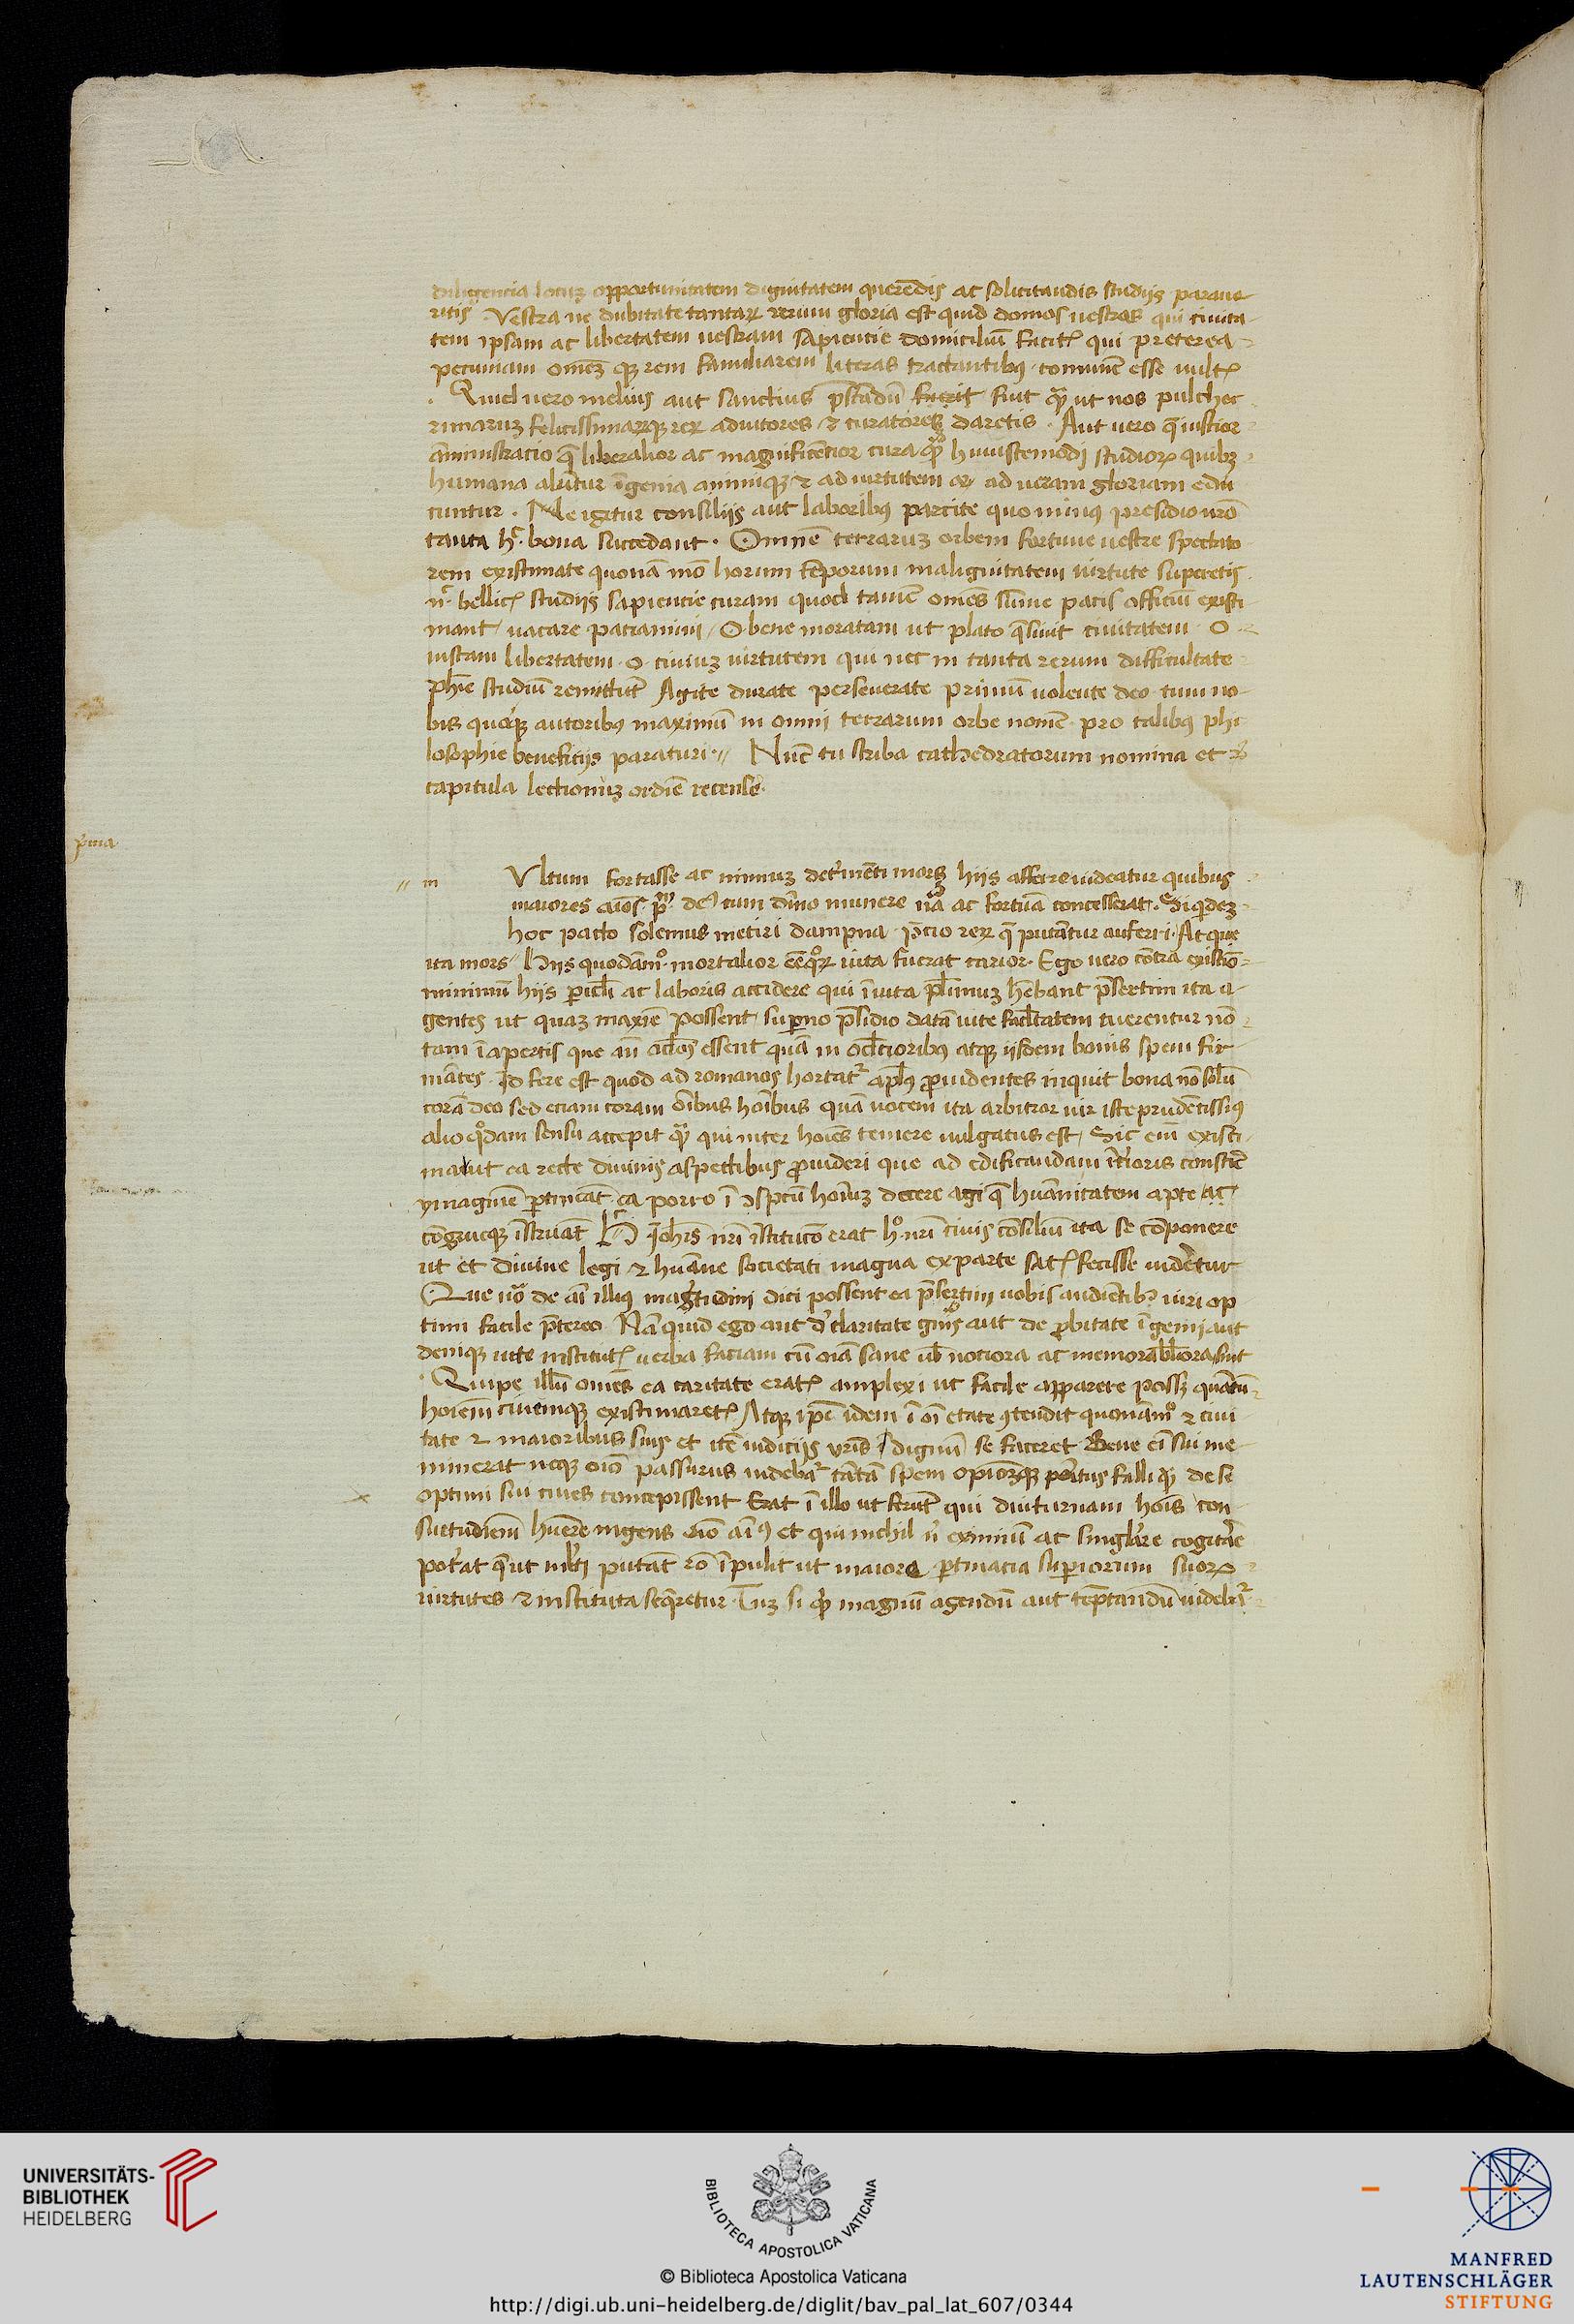 diligencia locuz opportunitatem dignitatem querendis ac solicitandis studijs paraue
ritis . Vestra ne dubitate tantarum rerum gloria est quid domos uestras qui ciuita
tem ipsam ac libertatem uestram sapiencie domicilium facitis qui preterea
pecuniam omnem que rem familiarem literas tractantibus comunem esse uultis
Quid uero melius aut sanctius fuit quam ut nos pulcher
rimarum felicissimarumque rerum aduitores et curatores daretis . Aut uero que iustior
aministracio que liberalior ac magnificencior cura quam huiuscemodi studiorum quibus
humana aluntur ingenia animique et ad uirtutem ad ueram gloriam edu
cuntur . Ne igitur consilijs aut laboribus parcite quo minus presidio uestro
tanta bona succedant . Omnem terrarum orbem fortune uestre spectato
rem existimate quonam modo horum temporum malignitatem uirtute superetis
bellicis studijs sapiencie curam quod tamen omnes summe pacis officium existi
mant uacare paciamini / O bene moratam ut plato quesiuit ciuitatem O
iustam libertatem o ciuium uirtutem qui nec in tanta rerum difficultate
studium remittunt Agite durate perseuerate primum uolente deo tum no
bis quoque autoribus maximum in omni terrarum orbe nomen pro talibus phi
losophie beneficijs paraturi // Nunc tu scriba cathedratorum nomina et
capitula lectionum ordine recense
prima
m
Vltum fortasse ac nimium detrimenti mors hijs afferre uideatur quibus
maiores deus tum diuino munere ac fortuna concesserat . Siquidem
hoc pacto solemus metiri dampna precio rerum que putantur auferri . Atque
ita mors hijs quodammodo mortalior quorum uita fuerat carior . Ego uero contra
minimum hijs periculi ac laboris accidere qui in uita plurimum habebant presertim ita a
gentes ut quam maxime possent superno presidio datam uite facultatem tuerentur non
tam in apertis que essent quam in atque ijsdem bonis spem fir
mantes . Id fere est quod ad romanos hortatur apostolus prouidentes inquit bona non solum
coram deo sed eciam coram omnibus hominibus quam uocem ita arbitror uir iste prudentissimus
alio quodam sensu accepit quam qui inter homines temere uulgatus est / Sic enim existi
mauit ea recte diuinis aspectibus prouideri que ad edificandam interioris
ymaginem pertineant ea porro in conspectum hominum decere agi que humanitatem apte ac
congrueque instruant nostri erat nostri ciuis consilium ita se componere
ut et diuine legi et humane societati magna ex parte satis fecisse uideretur
Que uero de animi illius magnitudini dici possent ea presertim uobis audientibus uiri op
timi facile pretereo Nam quid ego aut de claritate generis aut de probitate ingenij aut
denique uite institutis uerba faciam cum omnia sane uobis notiora ac memorabiliora sint
Quipe illum omnes ea caritate eratis amplexi ut facile apparere posset quantum
hominem ciuemque existimaretis Atque ipse idem in omni etate contendit quonammodo et ciui
tate et maioribus suis et item iudicijs uestris dignum se faceret Bene enim sui me
minerat neque omnino passurus uidebatur tantam spem opinionemque penitus falli quam de se
optimi sui ciues concepissent Erat in illo ut ferunt qui diuturnam hominis con
suetudinem habuere ingens omnino animus et qui nichil non eximium ac singulare cogitare
poterat que ut multi putant racio impulit ut maiore pertinacia superiorum suorum
uirtutes et instituta sequeretur . Tum si quid magnum agendum aut temptandum uidebatur
UNIVERSITÄTS-
BIBLIOTHEK
HEIDELBERG
BIBLIOTECA APOSTOLICA VATICANA
© Biblioteca Apostolica Vaticana
http://digi.ub.uni-heidelberg.de/diglit/bav_pal_lat_607/0344
MANFRED
LAUTENSCHLÄGER
STIFTUNG